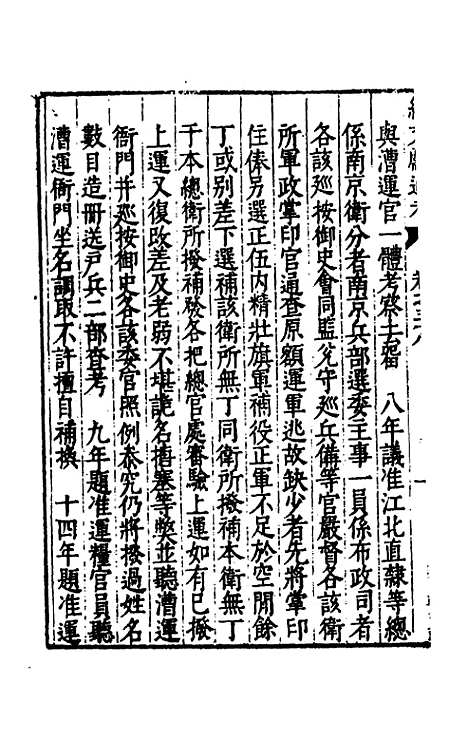 與漕運官一體考察去留　八年議准江北直隸等總
係南京衛分者南京兵部選委主事一員係布政司者
各該巡按御史會同監兌守巡兵備等官嚴督各該衛
所軍政掌印官通查原額運軍逃故缺少者先將掌印
住俸另選正伍內精壯旗軍補役正軍不足於空閒餘
丁或別差下選補該衛所無丁同衛所撥補本衛無丁
于本總衛所撥補發各把總官處審驗上運如有已撥
上運又復改差及老弱不堪詭名搪塞等弊並聽漕運
衙門并巡按御史各該委官照例叅究仍將撥過姓名
數目造冊送戶兵二部查考　九年題准運糧官員聽
漕運衙門坐名調取不許擅自補換　十四年題准運